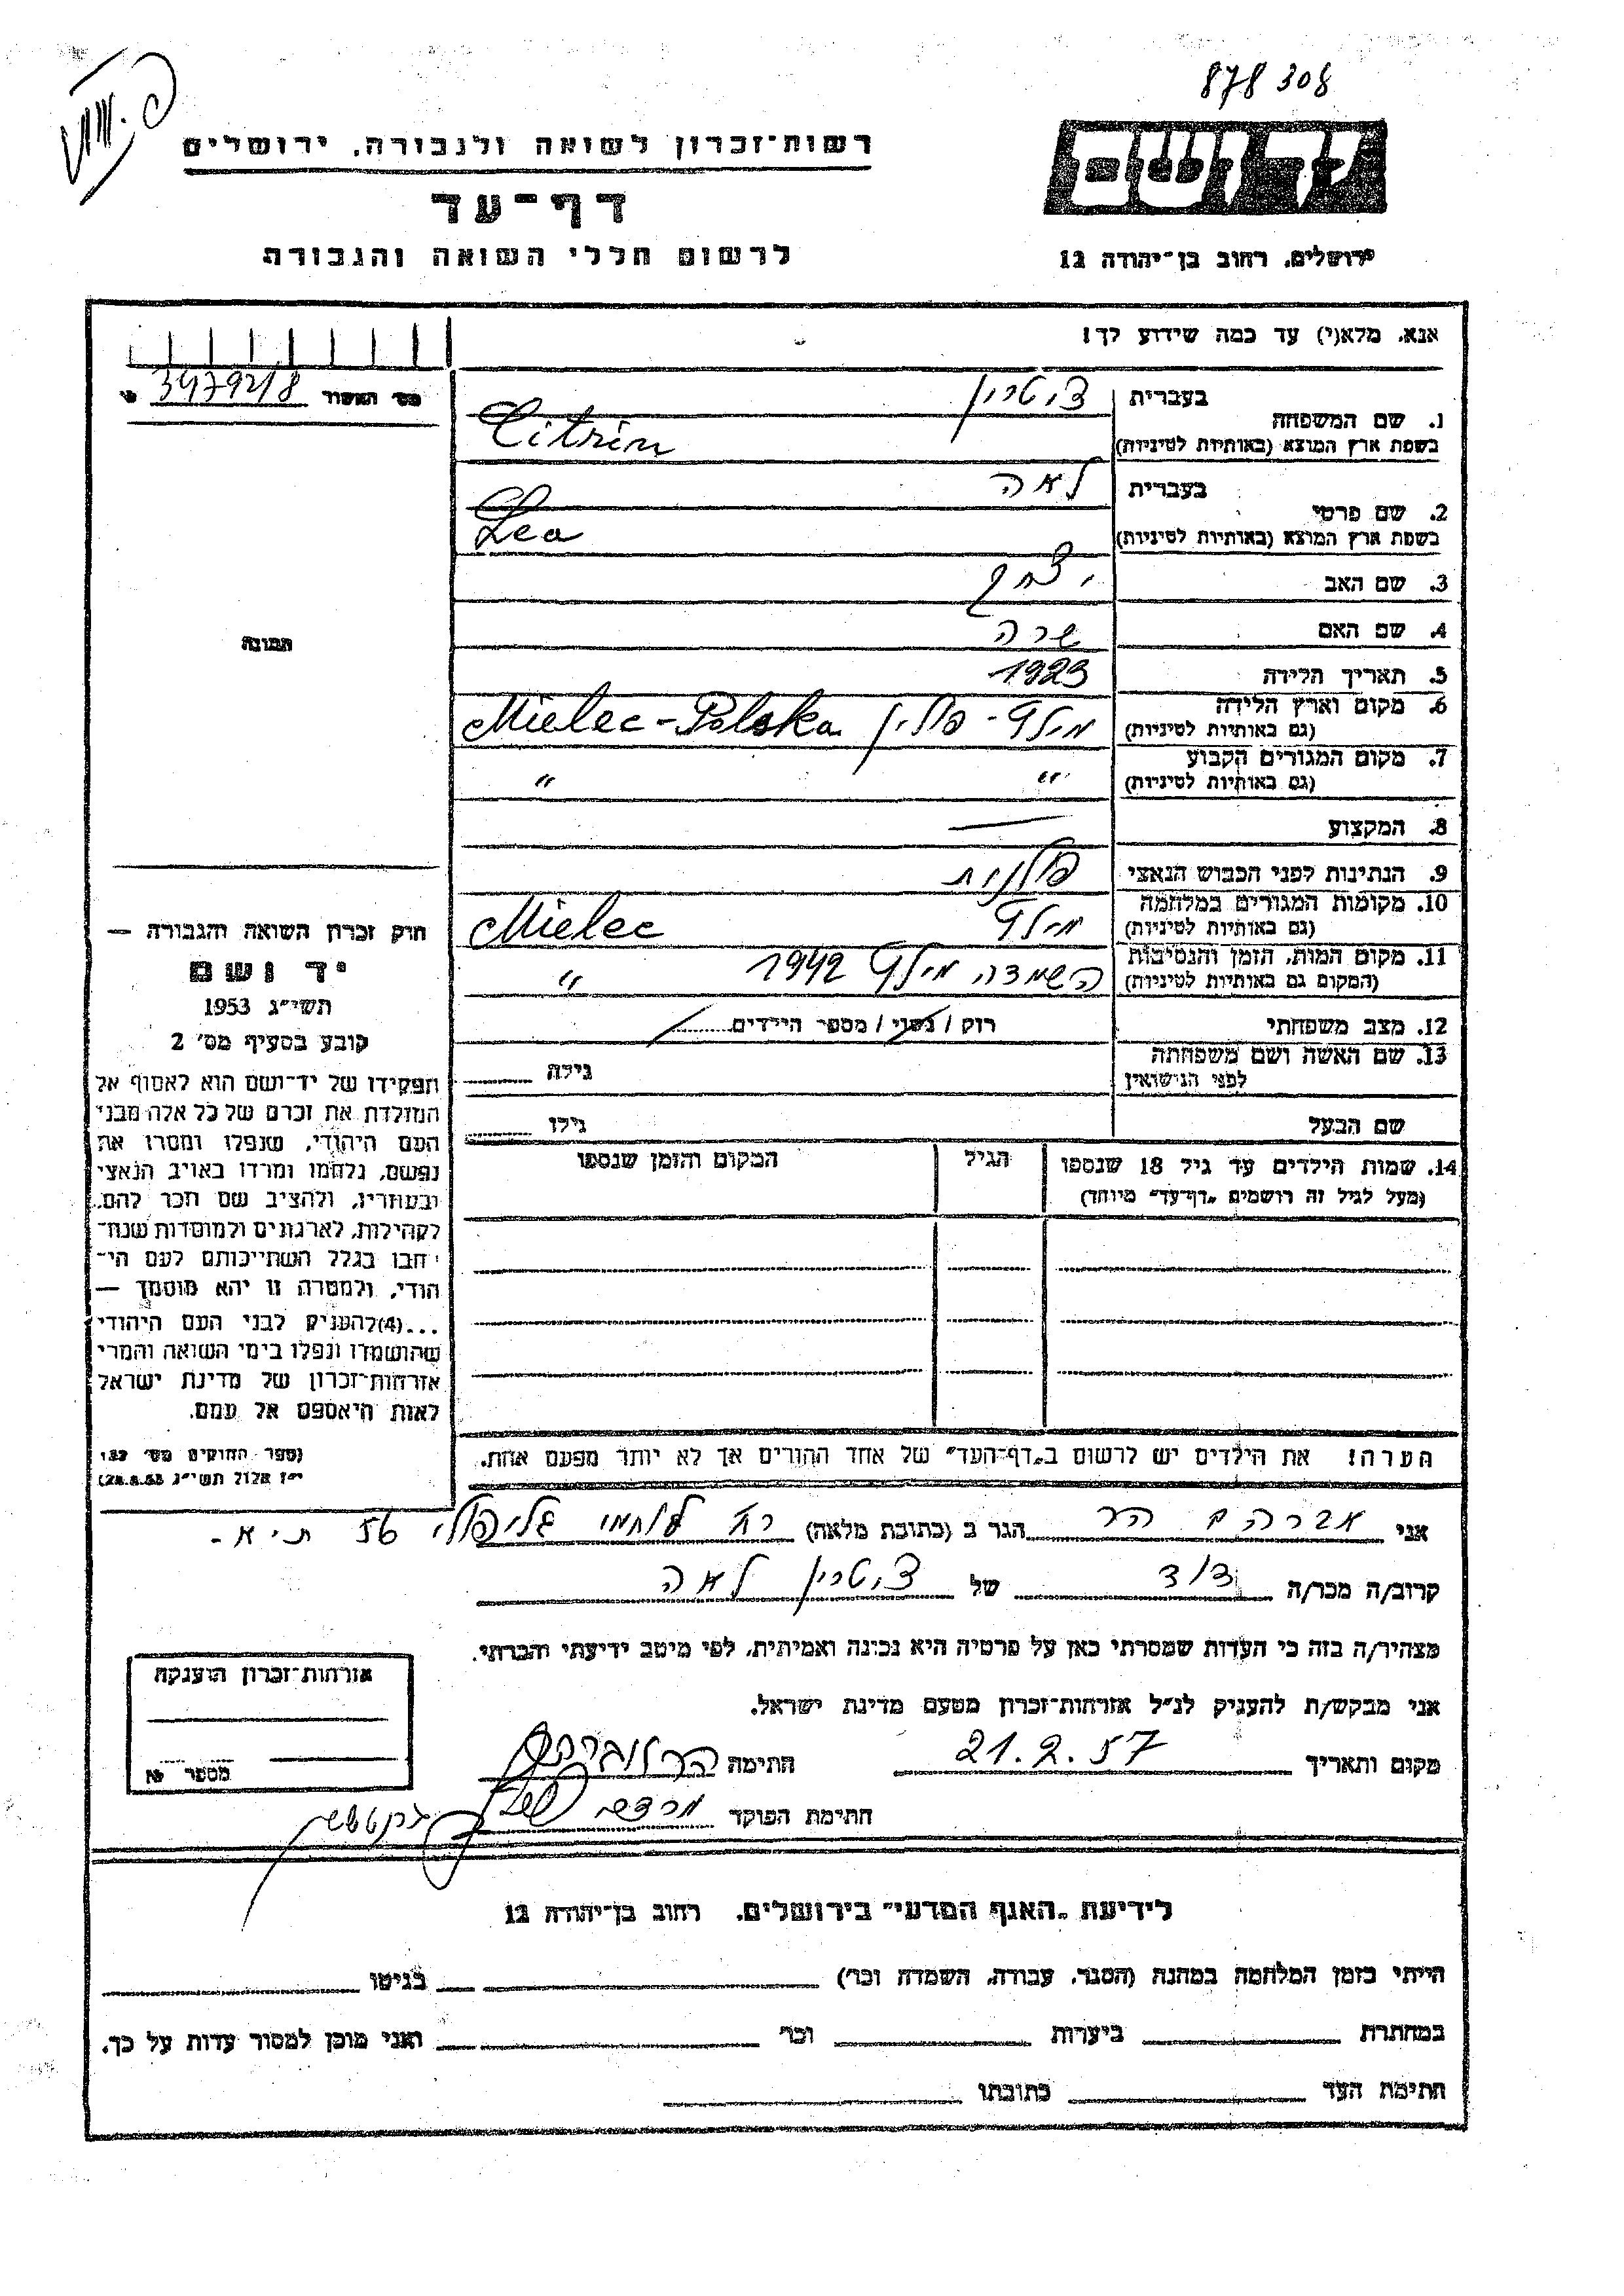 878 308
רשות־זכרון לשואה ולגבורה, ירושלים
דף־עד
לרשום חללי השואה והגבורה
ירושלים, רחוב בן־יהודה 12
אנא, מלא(י) עד כמה שידוע לך!
מס׳ האשור 347921/8
1. שם המשפחה בעברית ציטרין
בשפת ארץ המוצא (באותיות לטיניות) Citrin
2. שם פרטי בעברית לאה
בשפת ארץ המוצא (באותיות לטיניות) Lea
3. שם האב יצחק
4. שם האם שרה
5. תאריך הלידה 1923
6. מקום וארץ הלידה מילץ - פולין Mielec - Polska
(גם באותיות לטיניות)
7. מקום המגורים הקבוע " "
(גם באותיות לטיניות)
8. המקצוע —
9. הנתינות לפני הכבוש הנאצי פולנית
10. מקומות המגורים במלחמה מילץ Mielec
(גם באותיות לטיניות)
11. מקום המות, הזמן והנסיבות השמדה מילץ 1942 "
(המקום גם באותיות לטיניות)
12. מצב משפחתי רוק / נשוי / מספר הילדים
13. שם האשה ושם משפחתה
לפני הנישואין גילה
שם הבעל גילו
14. שמות הילדים עד גיל 18 שנספו הגיל המקום והזמן שנספו
(מעל לגיל זה רושמים "דף־עד" מיוחד)
תמונה
חוק זכרון השואה והגבורה —
יד ושם
תשי״ג 1953
קובע בסעיף מס׳ 2
תפקידו של יד־ושם הוא לאסוף אל
המולדת את זכרם של כל אלה מבני
העם היהודי, שנפלו ומסרו את
נפשם, נלחמו ומרדו באויב הנאצי
ובעוזריו, ולהציב שם וזכר להם,
לקהילות, לארגונים ולמוסדות שנח־
רבו בגלל השתייכותם לעם הי־
הודי, ולמטרה זו יהא מוסמך —
...(4)להעניק לבני העם היהודי
שהושמדו ונפלו בימי השואה והמרי
אזרחות־זכרון של מדינת ישראל
לאות היאספם אל עמם.
(ספר החוקים מס׳ 132,
י״ז אלול תשי״ג 28.8.53)
הערה! את הילדים יש לרשום ב"דף־העד" של אחד ההורים אך לא יותר מפעם אחת.
אני אברהם הר הגר ב (כתובת מלאה) רח׳ לוחמי גליפולי 56 ת״א -
קרוב/ה מכר/ה דוד של ציטרין לאה
מצהיר/ה בזה כי העדות שמסרתי כאן על פרטיה היא נכונה ואמיתית, לפי מיטב ידיעתי והכרתי.
אני מבקש/ת להעניק לנ״ל אזרחות־זכרון מטעם מדינת ישראל.
מקום ותאריך 21.2.57 חתימה
חתימת הפוקד
אזרחות־זכרון הוענקה
מספר №
לידיעת "האגף המדעי" בירושלים, רחוב בן־יהודה 12
הייתי בזמן המלחמה במחנה (הסגר, עבודה, השמדה וכר׳) בגיטו
במחתרת ביערות וכר׳ ואני מוכן למסור עדות על כך.
חתימת העד כתובתו